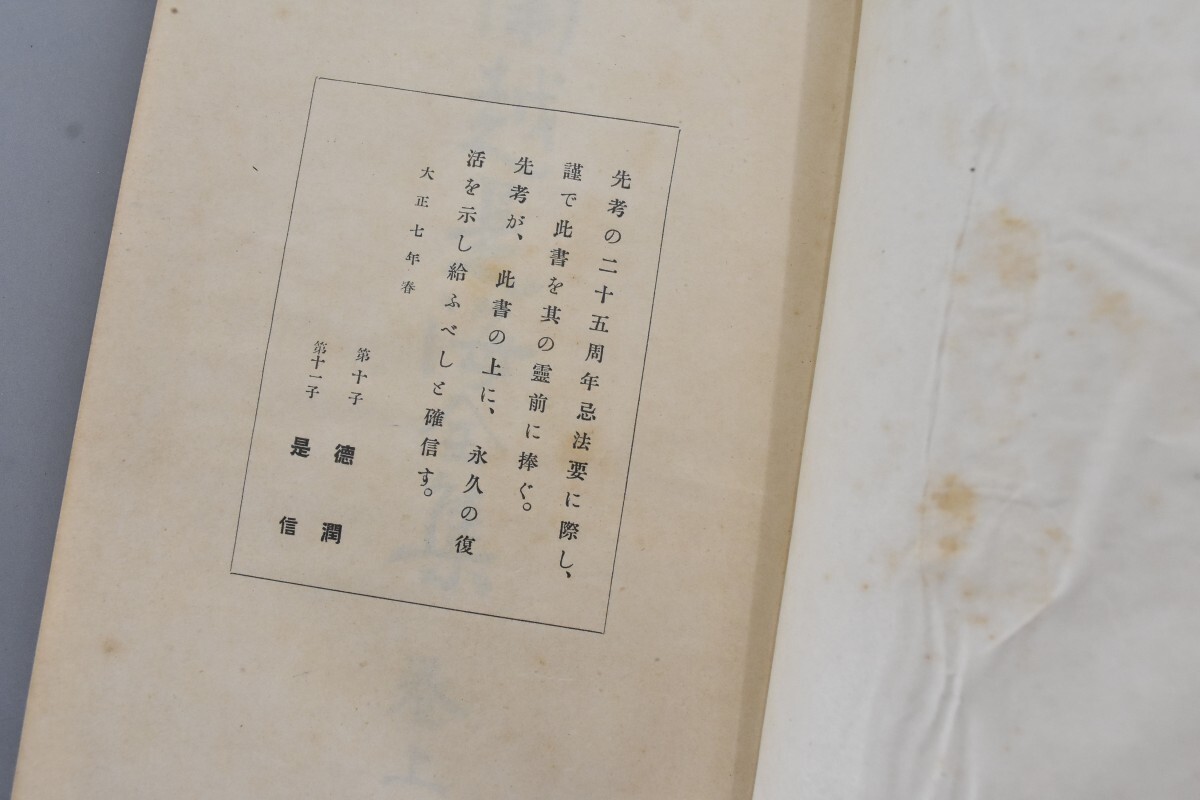 先考の二十五周年忌法要に際し、
謹で此書を其の靈前に捧ぐ。
先考が、此書の上に、永久の復
活を示し給ふべしと確信す。
大正七年春
第十子 德潤
第十一子 是信